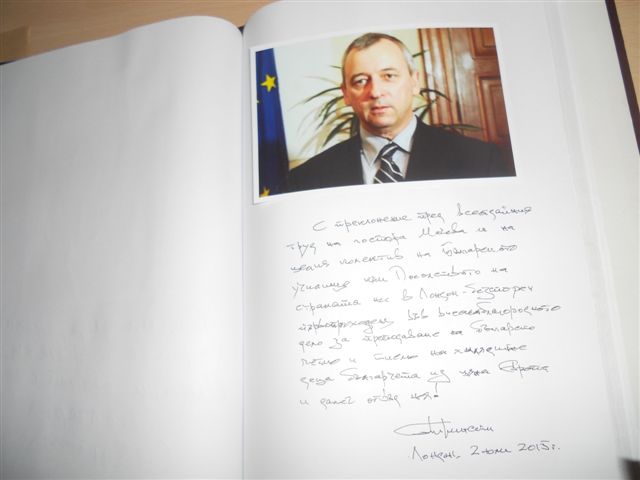 С преклонение пред всеотдайния
труд на госпожа Мечева и на
целия колектив на Българското
училище към Посолството на
страната ни в Лондон - безспорен
първопроходец във високоблагородното
дело за преподаване на българско
четмо и писмо на хилядите
деца българчета из цяла Европа
и далеч отвъд нея!
Лондон, 2 юли 2015 г.